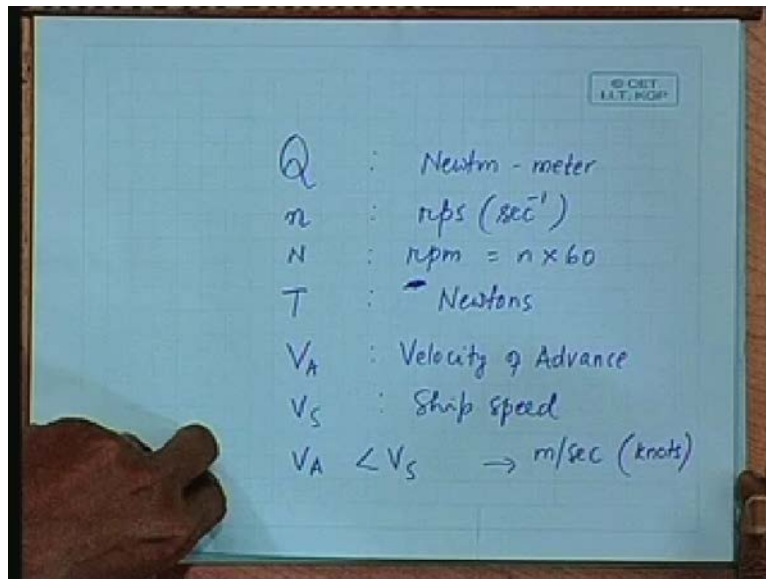 © CET
I.I.T. KGP
Q : Newton - meter
n : rps (sec⁻¹)
N : rpm = n × 60
T : Newtons
V_A : Velocity of Advance
V_S : Ship speed
V_A < V_S → m/sec (knots)